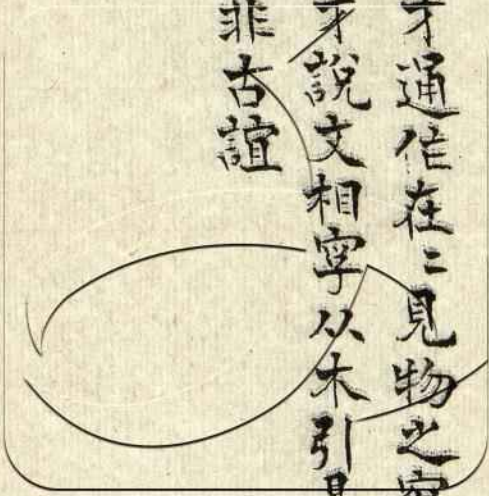 才通作在〻見物之
才說文相字从木引
非古誼